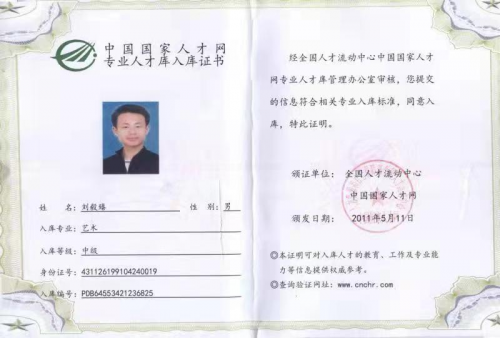 中国国家人才网
专业人才库入库证书
姓 名：刘毅臻 性 别：男
入库专业：艺术
入库等级：中级
身份证号：431126199104240019
入库编号：PDB64553421236825
经全国人才流动中心中国国家人才
网专业人才库管理办公室审核，您提交
的信息符合相关专业入库标准，同意入
库，特此证明。
颁证单位：全国人才流动中心
中国国家人才网
颁发日期：2011年5月11日
◎本证明可对入库人才的教育、工作及专业能
力等信息提供权威参考。
◎查询验证网址：www.cnchr.com